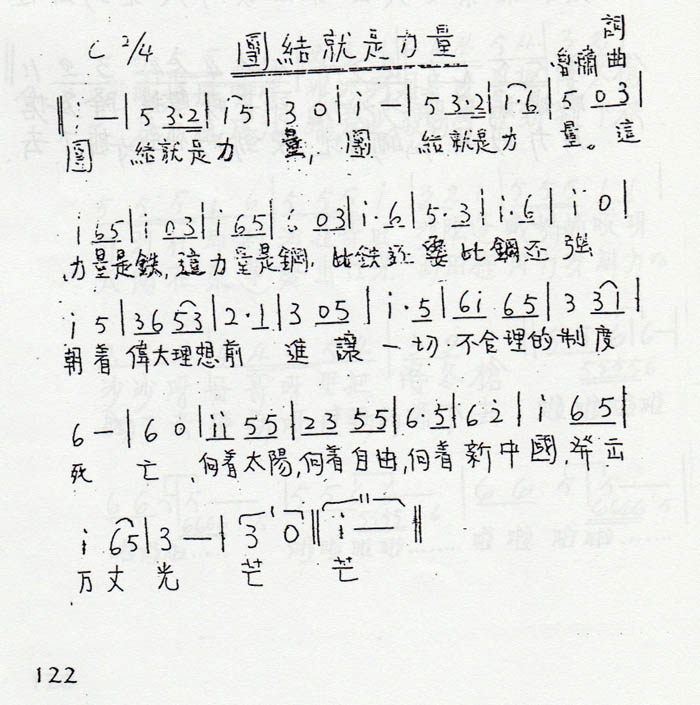 C 2/4 團結就是力量 詞
曲
‖i — | 5 3·2 | i 5 | 3 0 | i — | 5 3·2 | i·6 | 5 0 3 |
團 結就是力 量, 團 結就是力 量。這
i 65 | i 03 | i 65 | i 03 | i·6 | 5·3 | i·6 | i 0 |
力量是鉄, 這力量是鋼, 比鉄還要比鋼还強
i 5 | 36 53 | 2·1 | 3 05 | i·5 | 6i 65 | 3 31 |
朝着偉大理想前 進讓一切不合理的制度
6 — | 6 0 | ii 55 | 23 55 | 6·5 | 6 2 | i 65 |
死 亡 向着太陽, 向着自由, 向着新中國, 發出
i 65 | 3 — | 3 0 ‖ i — ‖
万丈光 芒 芒
122